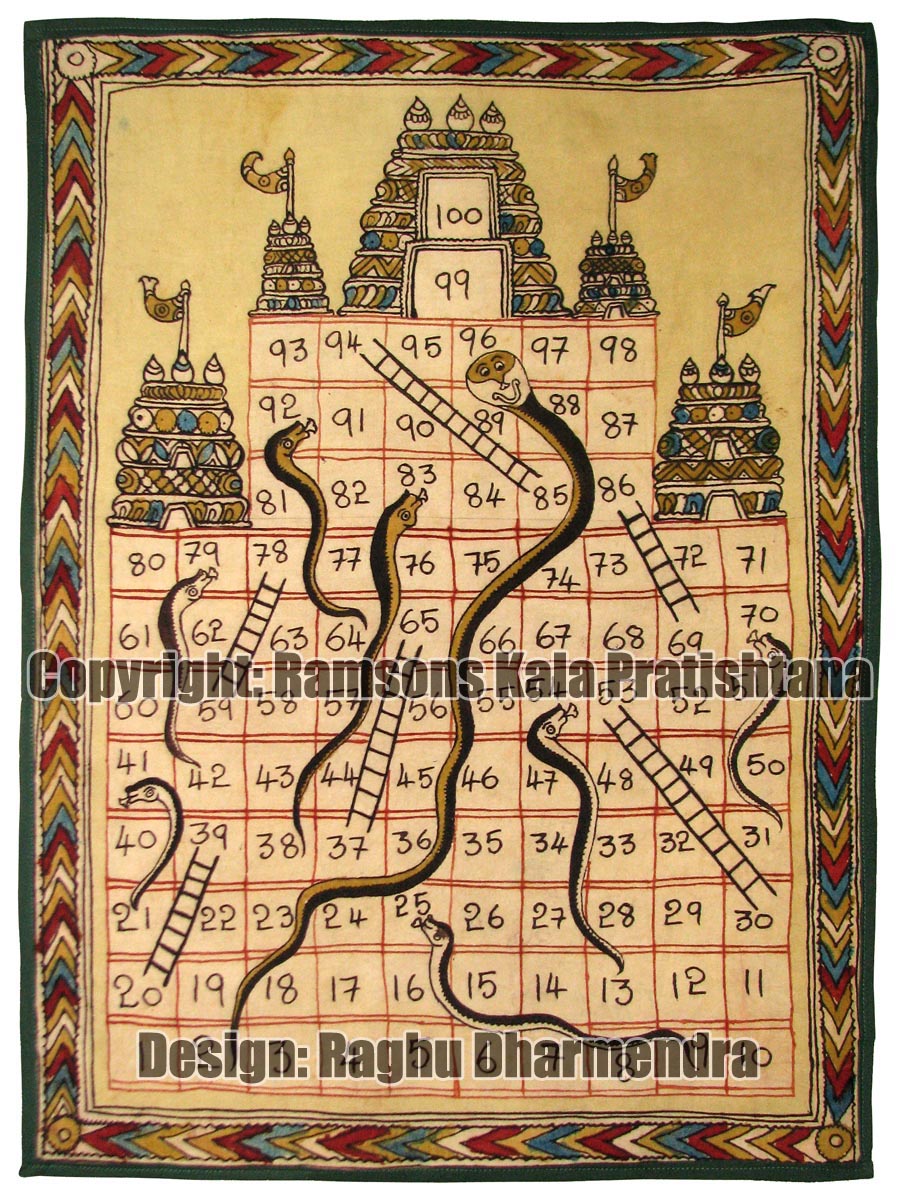 100
99
93 94 95 96 97 98
92 91 90 89 88 87
81 82 83 84 85 86
80 79 78 77 76 75 74 73 72 71
61 62 63 64 65 66 67 68 69 70
Copyright: Ramsons Kala Pratishtana
60 59 58 57 56 55 54 53 52
41 42 43 44 45 46 47 48 49 50
40 39 38 37 36 35 34 33 32 31
21 22 23 24 25 26 27 28 29 30
20 19 18 17 16 15 14 13 12 11
1 2 3 4 5 6 7 8 9 10
Design: Raghu Dharmendra